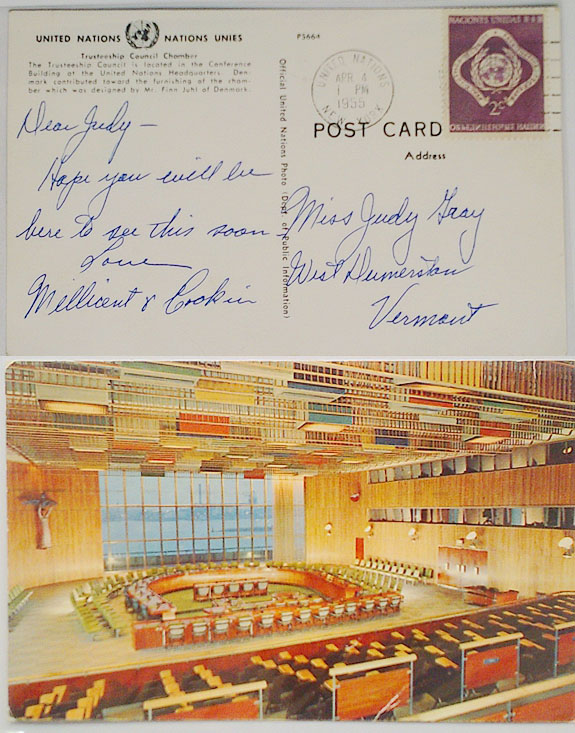 UNITED NATIONS NATIONS UNIES
P5664
Trusteeship Council Chamber
The Trusteeship Council is located in the Conference
Building at the United Nations Headquarters. Den-
mark contributed toward the furnishing of the cham-
ber which was designed by Mr. Finn Juhl of Denmark.
Dear Judy –
Hope you will be
here to see this soon –
Love
Millicent & Cookin
Official United Nations Photo (Dept. of Public Information)
UNITED NATIONS
APR 4
1 PM
1955
NEW YORK
NACIONES UNIDAS
2¢
POST CARD
Address
Miss Judy Gray
West Dumerston
Vermont